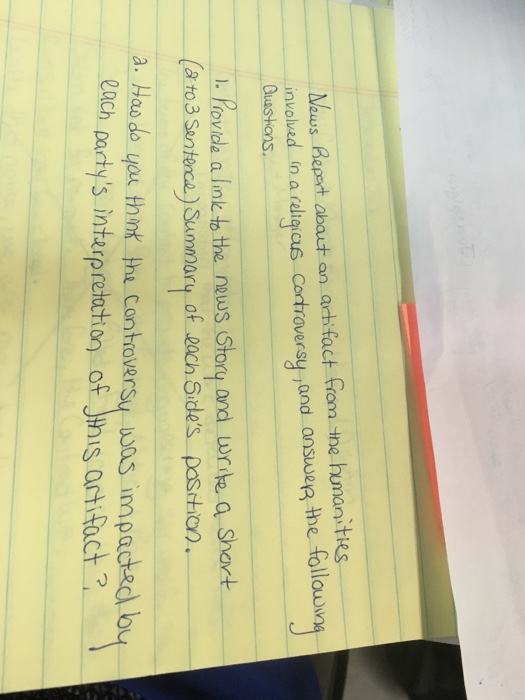 News Report about an artifact from the humanities
involved in a religious controversy, and answer the following
Questions.
1. Provide a link to the news story and write a short
(2 to 3 sentence) summary of each side's position.
2. How do you think the controversy was impacted by
each party's interpretation of this artifact?